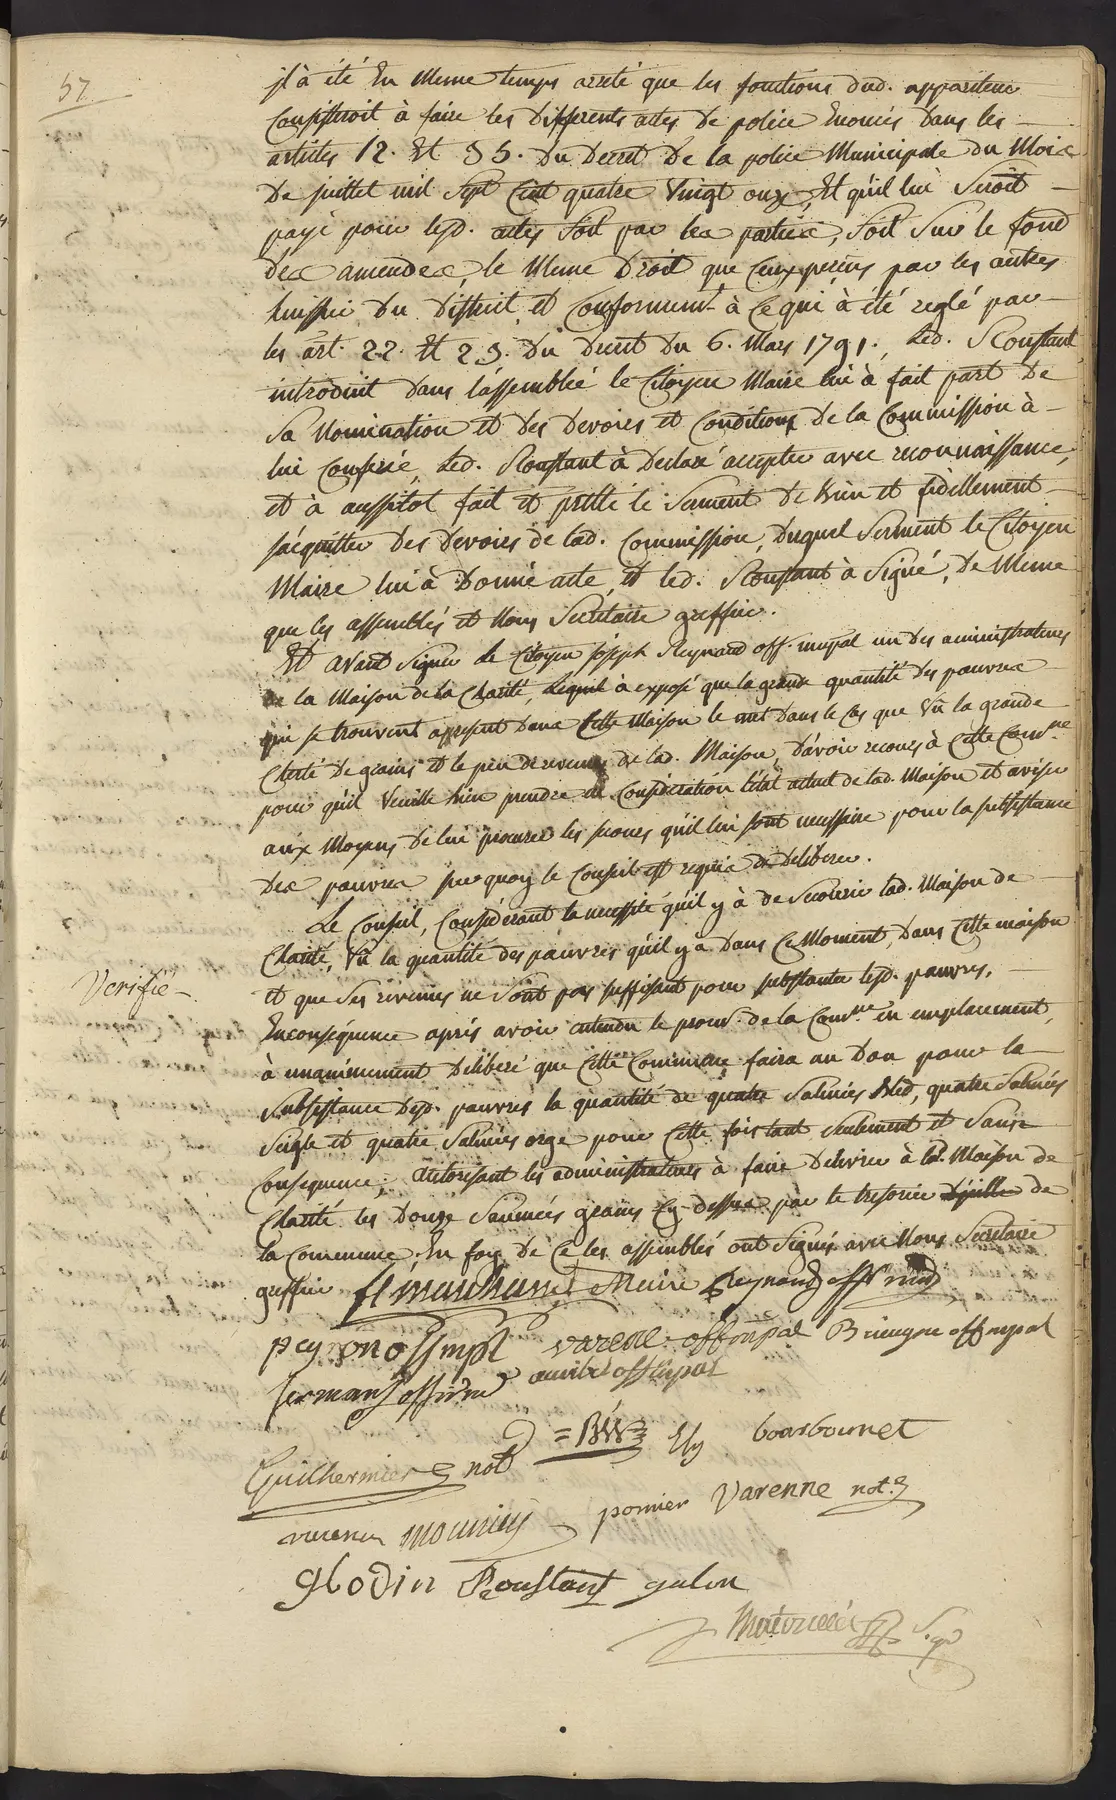 57
jl à été En Meme temps arreté que les fonctions dud. appariteur
Consisteroit à faire les Differents actes de police Enoncés Dans les
articles 12. Et 35. Du Decret De la police Municipale Du Mois
De juillet mil Sept Cent quatre Vingt onze, Et qu'il lui Seroit
payé pour lesd. actes Soit par les parties, Soit Sur le fond
des amendes, le Meme Droit que Ceux perçus par les autres
huissier Du District, et Conforment à Ce qui à été reglé par
les art. 22. Et 23. Du Decret Du 6. Mars 1791., Led. Roustant
introduit Dans l'assemblée le Citoyen Maire lui à fait part De
Sa Nomination et des Devoirs et Conditions De la Commission à
lui Conferée, Led. Roustant à Declaré accepter avec reconnaissance,
et à aussitot fait et pretté le Serment De bien et fidellement
s'acquitter Des Devoirs de lad. Commission, Duquel Serment le Citoyen
Maire lui à Donné acte, et led. Roustant à Signé, De Meme
que les assemblés et Nous Secretaire greffier.
Et avant Signer Le Citoyen joseph Reynard off. mupal un Des administrateurs
de la Maison De la Charité, Lequel à exposé que la grande quantité Des pauvres
qui se trouvent apresent Dans Cette Maison le met Dans le Cas que Vû la grande
Cherté De grains et le peu De revenus de lad. Maison, D'avoir recours à Cette Comune
pour qu'il Veuille bien prendre en Consideration l'état actuel de lad. Maison et aviser
aux Moyens De lui procurer les secours qu'il lui sont necessaire pour la subsistance
Des pauvres sur quoy le Conseil est requis De Deliberer.
Le Conseil, Considérant la necessité qu'il y à de Secourir lad. Maison de
Charité, Vû la quantité des pauvres qu'il y a Dans Ce Moment, Dans Cette maison
Verifié
et que Ses revenus ne Sont pas suffisant pour substanter lesd. pauvres,
Enconséquence aprés avoir entendu le procr. de la Comne en remplacement,
à unanimement Deliberé que Cette Commune faira un Don pour la
Subsistance Desd. pauvres la quantité de quatre Salmées Bled, quatre Salmées
Seigle et quatre Salmées orge pour Cette fois tant Seulement et Sans
Consequence, Autorisant les administrateurs à faire Delivrer à lad. Maison de
Charité les Douze Saumées grains Cy-dessus par le tresorier de
la Commune, En foy De Ce les assemblés ont Signés avec Nous Secretaire
greffier Maire Reynard off. mpl
peyron off mpl Varene off mpal Brieugne off mpal
jermans off off mpal
Guilhermier not Ely bourbournet
Mounier pomier Varenne not.
Glodin Roustant gulon